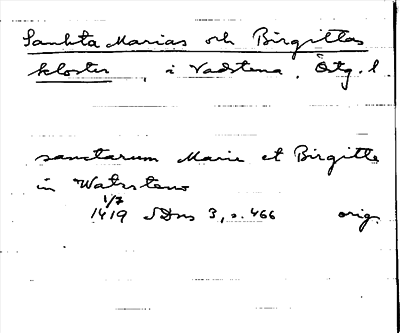 Sankta Marias och Birgittas
kloster, i Vadstena, Östg. l
sanctarum Marie et Birgitte
in Watzsteno
1/7
1419 SDns 3, s. 466 orig.